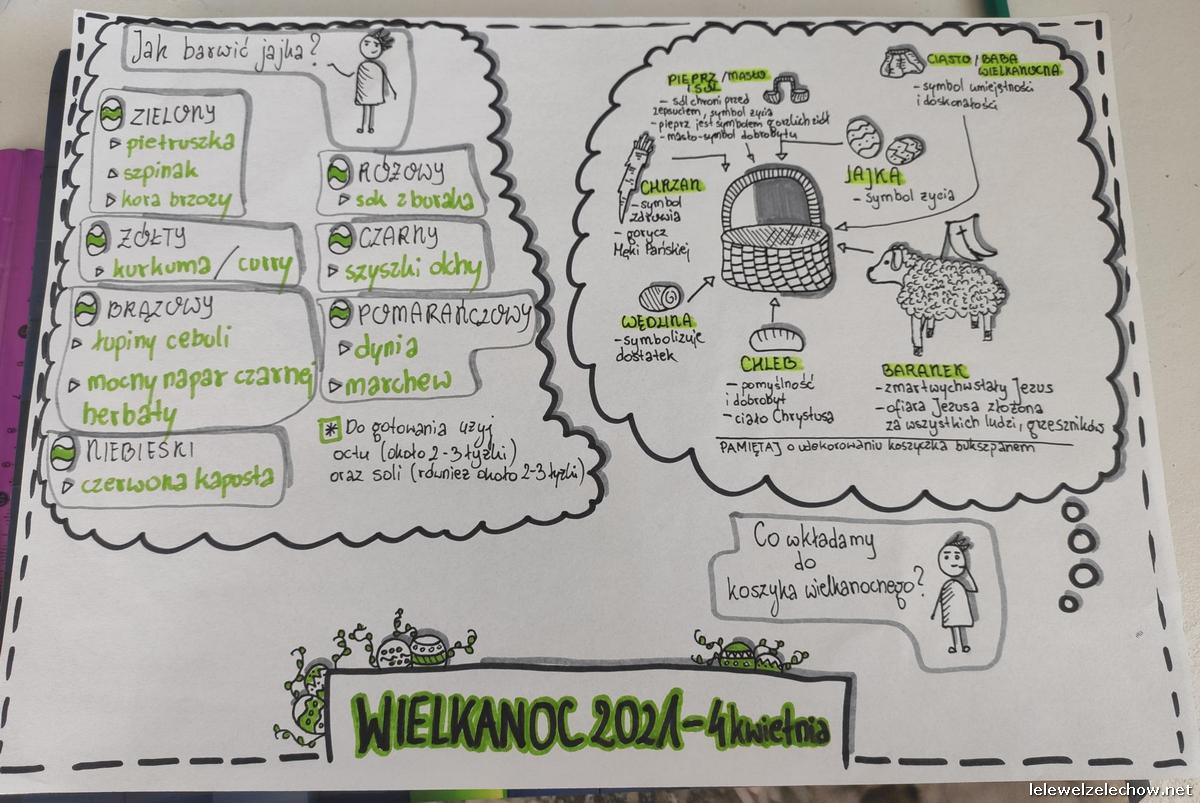 Jak barwić jajka?
ZIELONY
pietruszka
szpinak
kora brzozy
ŻÓŁTY
kurkuma / curry
BRĄZOWY
łupiny cebuli
mocny napar czarnej
herbaty
NIEBIESKI
czerwona kapusta
RÓŻOWY
sok z buraka
CZARNY
szyszki olchy
POMARAŃCZOWY
dynia
marchew
* Do gotowania użyj
octu (około 2-3 łyżki)
oraz soli (również około 2-3 łyżki)
PIEPRZ / MASŁO
I SÓL
- sól chroni przed
zepsuciem, symbol życia
- pieprz jest symbolem gorzkich ziół
- masło - symbol dobrobytu
CIASTO / BABA
WIELKANOCNA
- symbol umiejętności
i doskonałości
JAJKA
- symbol życia
CHRZAN
- symbol
zdrowia
- gorycz
Męki Pańskiej
WĘDLINA
- symbolizuje
dostatek
CHLEB
- pomyślność
i dobrobyt
- ciało Chrystusa
BARANEK
- zmartwychwstały Jezus
- ofiara Jezusa złożona
za wszystkich ludzi, grzeszników
PAMIĘTAJ o udekorowaniu koszyczka bukszpanem
Co wkładamy
do
koszyka wielkanocnego?
WIELKANOC 2021 - 4 kwietnia
lelewelzelechow.net